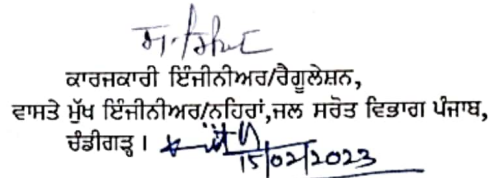 ਕਾਰਜਕਾਰੀ ਇੰਜੀਨੀਅਰ/ਰੈਗੂਲੇਸ਼ਨ,
ਵਾਸਤੇ ਮੁੱਖ ਇੰਜੀਨੀਅਰ/ਨਹਿਰਾਂ,ਜਲ ਸਰੋਤ ਵਿਭਾਗ ਪੰਜਾਬ,
ਚੰਡੀਗੜ੍ਹ।
15/02/2023